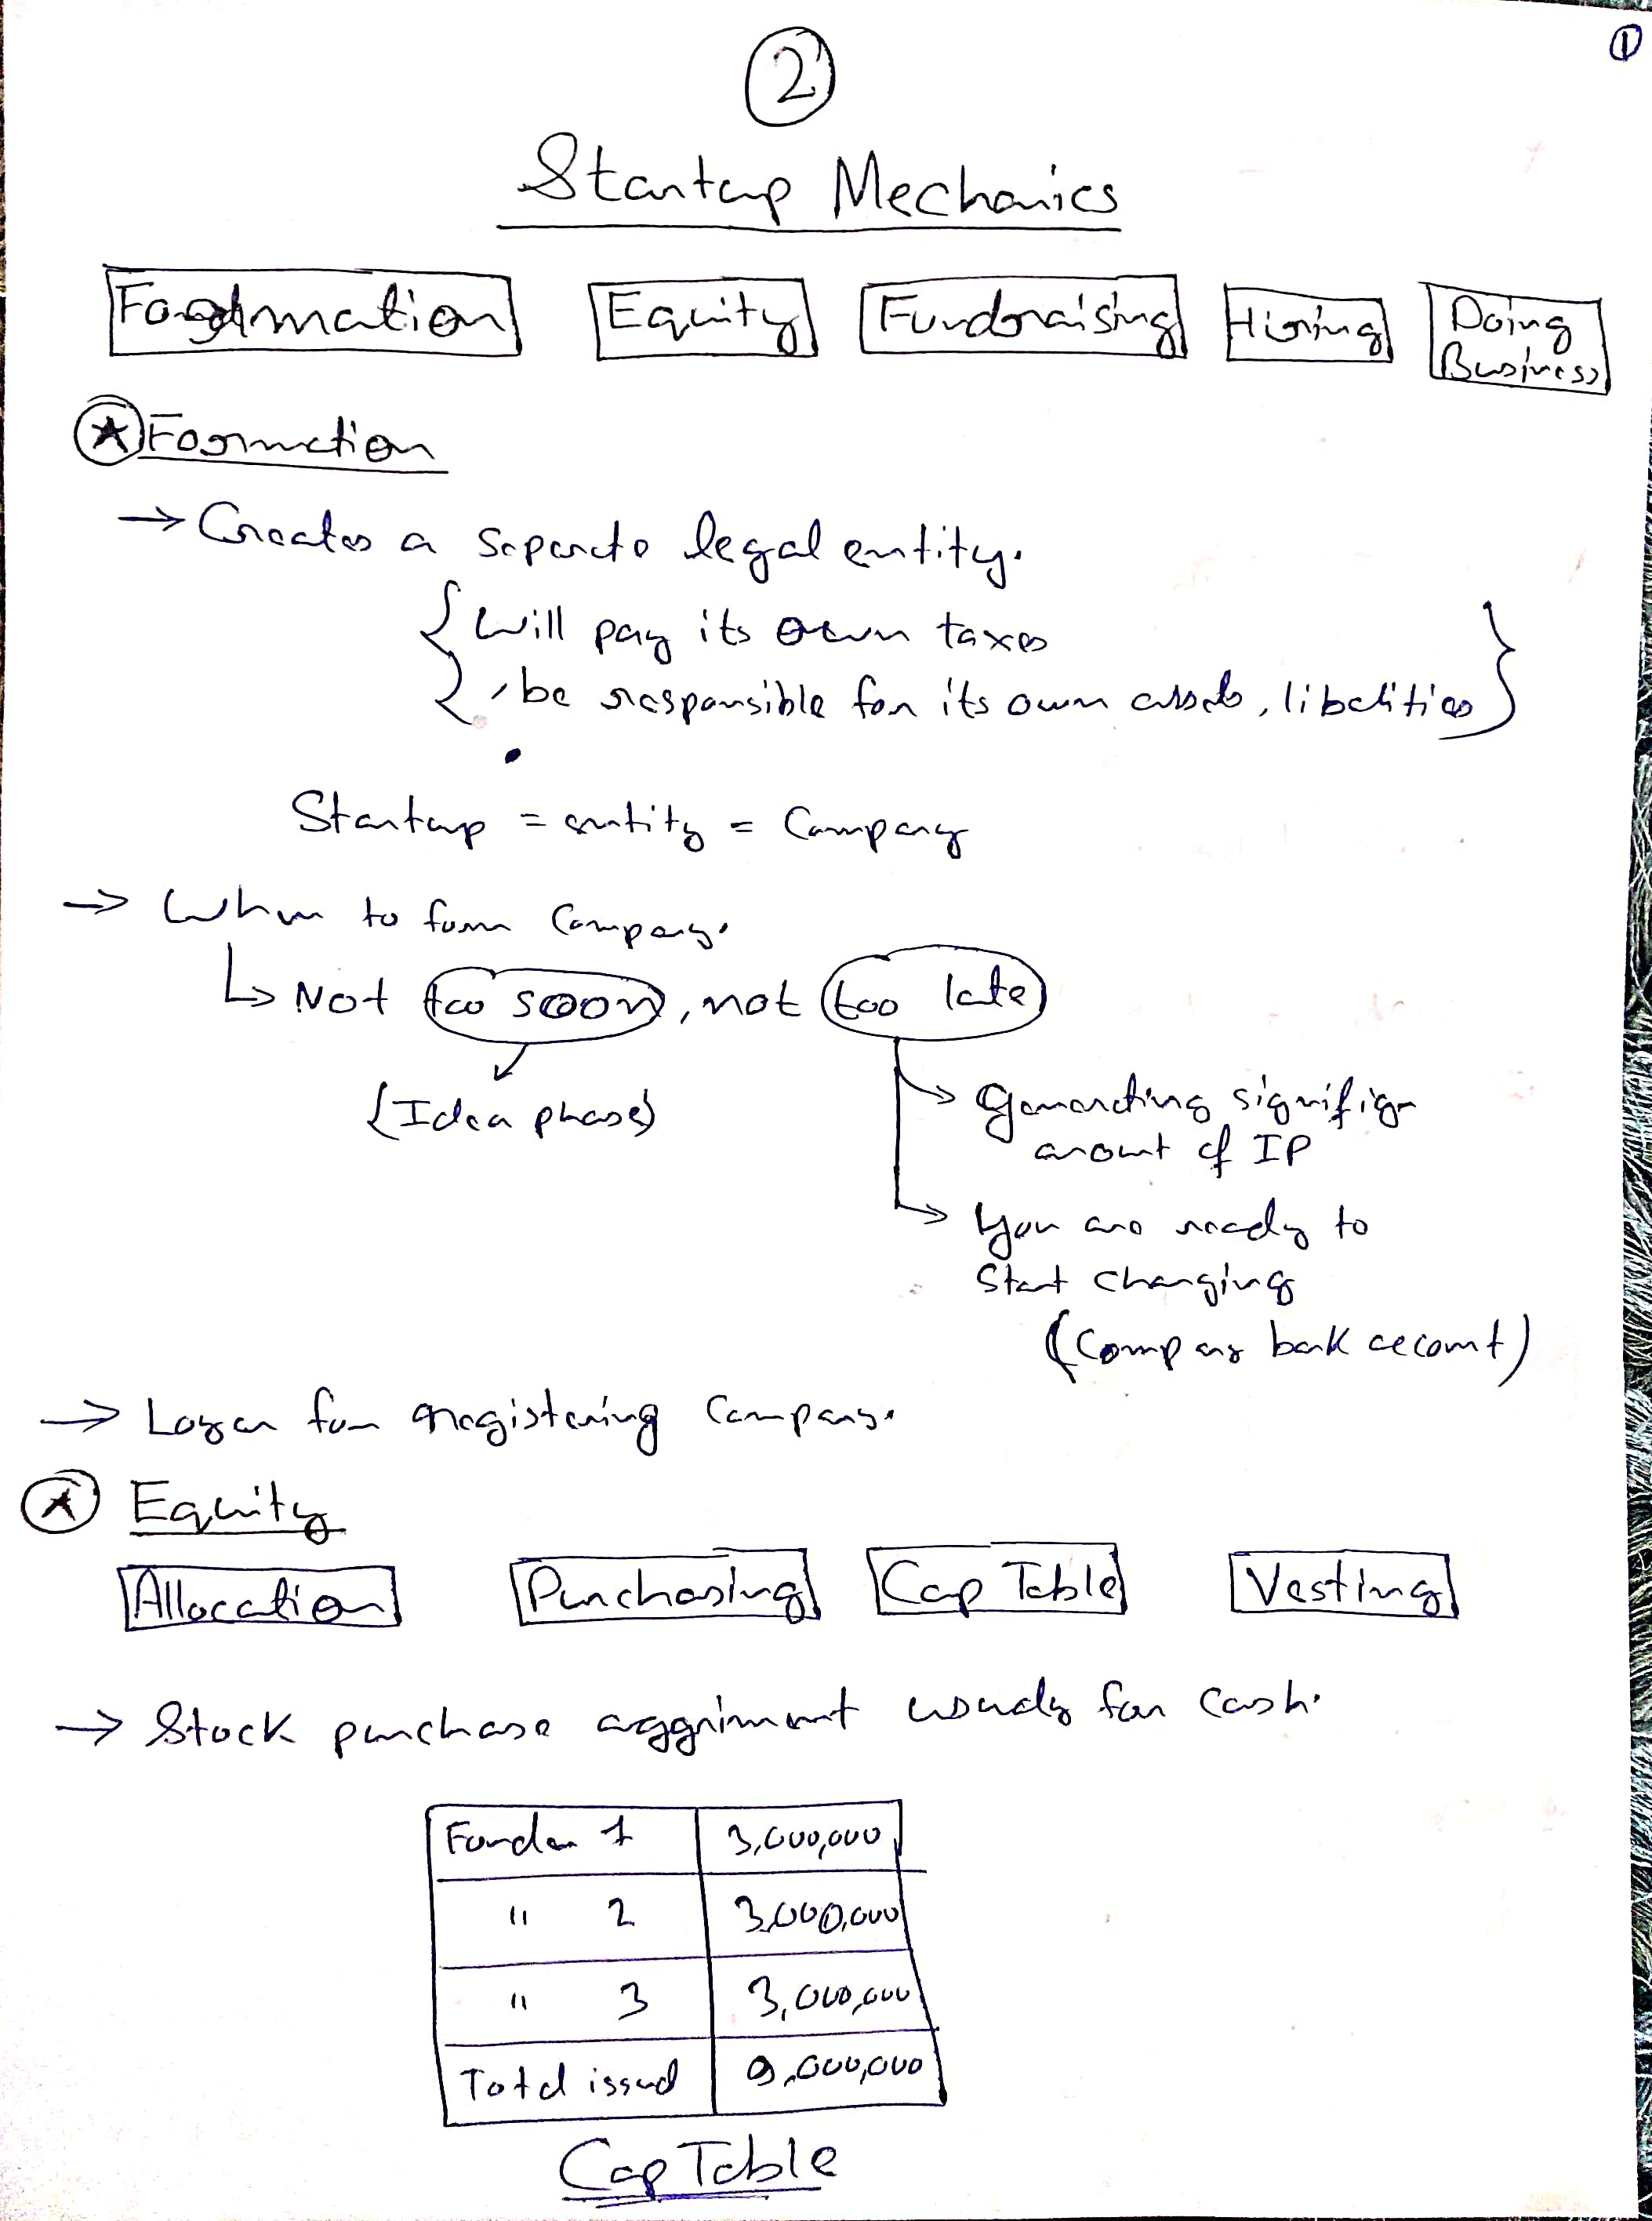 ①
②
Startup Mechanics
Formation Equity Fundraising Hiring Doing
Business
Formation
→ Creates a seperate legal entity.
{ Will pay its own taxes
, be responsible for its own assets, libelities }
Startup = entity = Company
→ When to form Company.
↳ Not too soon, not too late
{Idea phase}
→ Generating signifign
amount of IP
→ You are ready to
Start Charging
(Company bank account)
→ Loyer for registering Company.
Equity
Allocation Purchasing Cap Table Vesting
→ Stock purchase aggriment usualy for cash.
Founder 1 3,000,000
" 2 3,000,000
" 3 3,000,000
Total issued 9,000,000
Cap Table